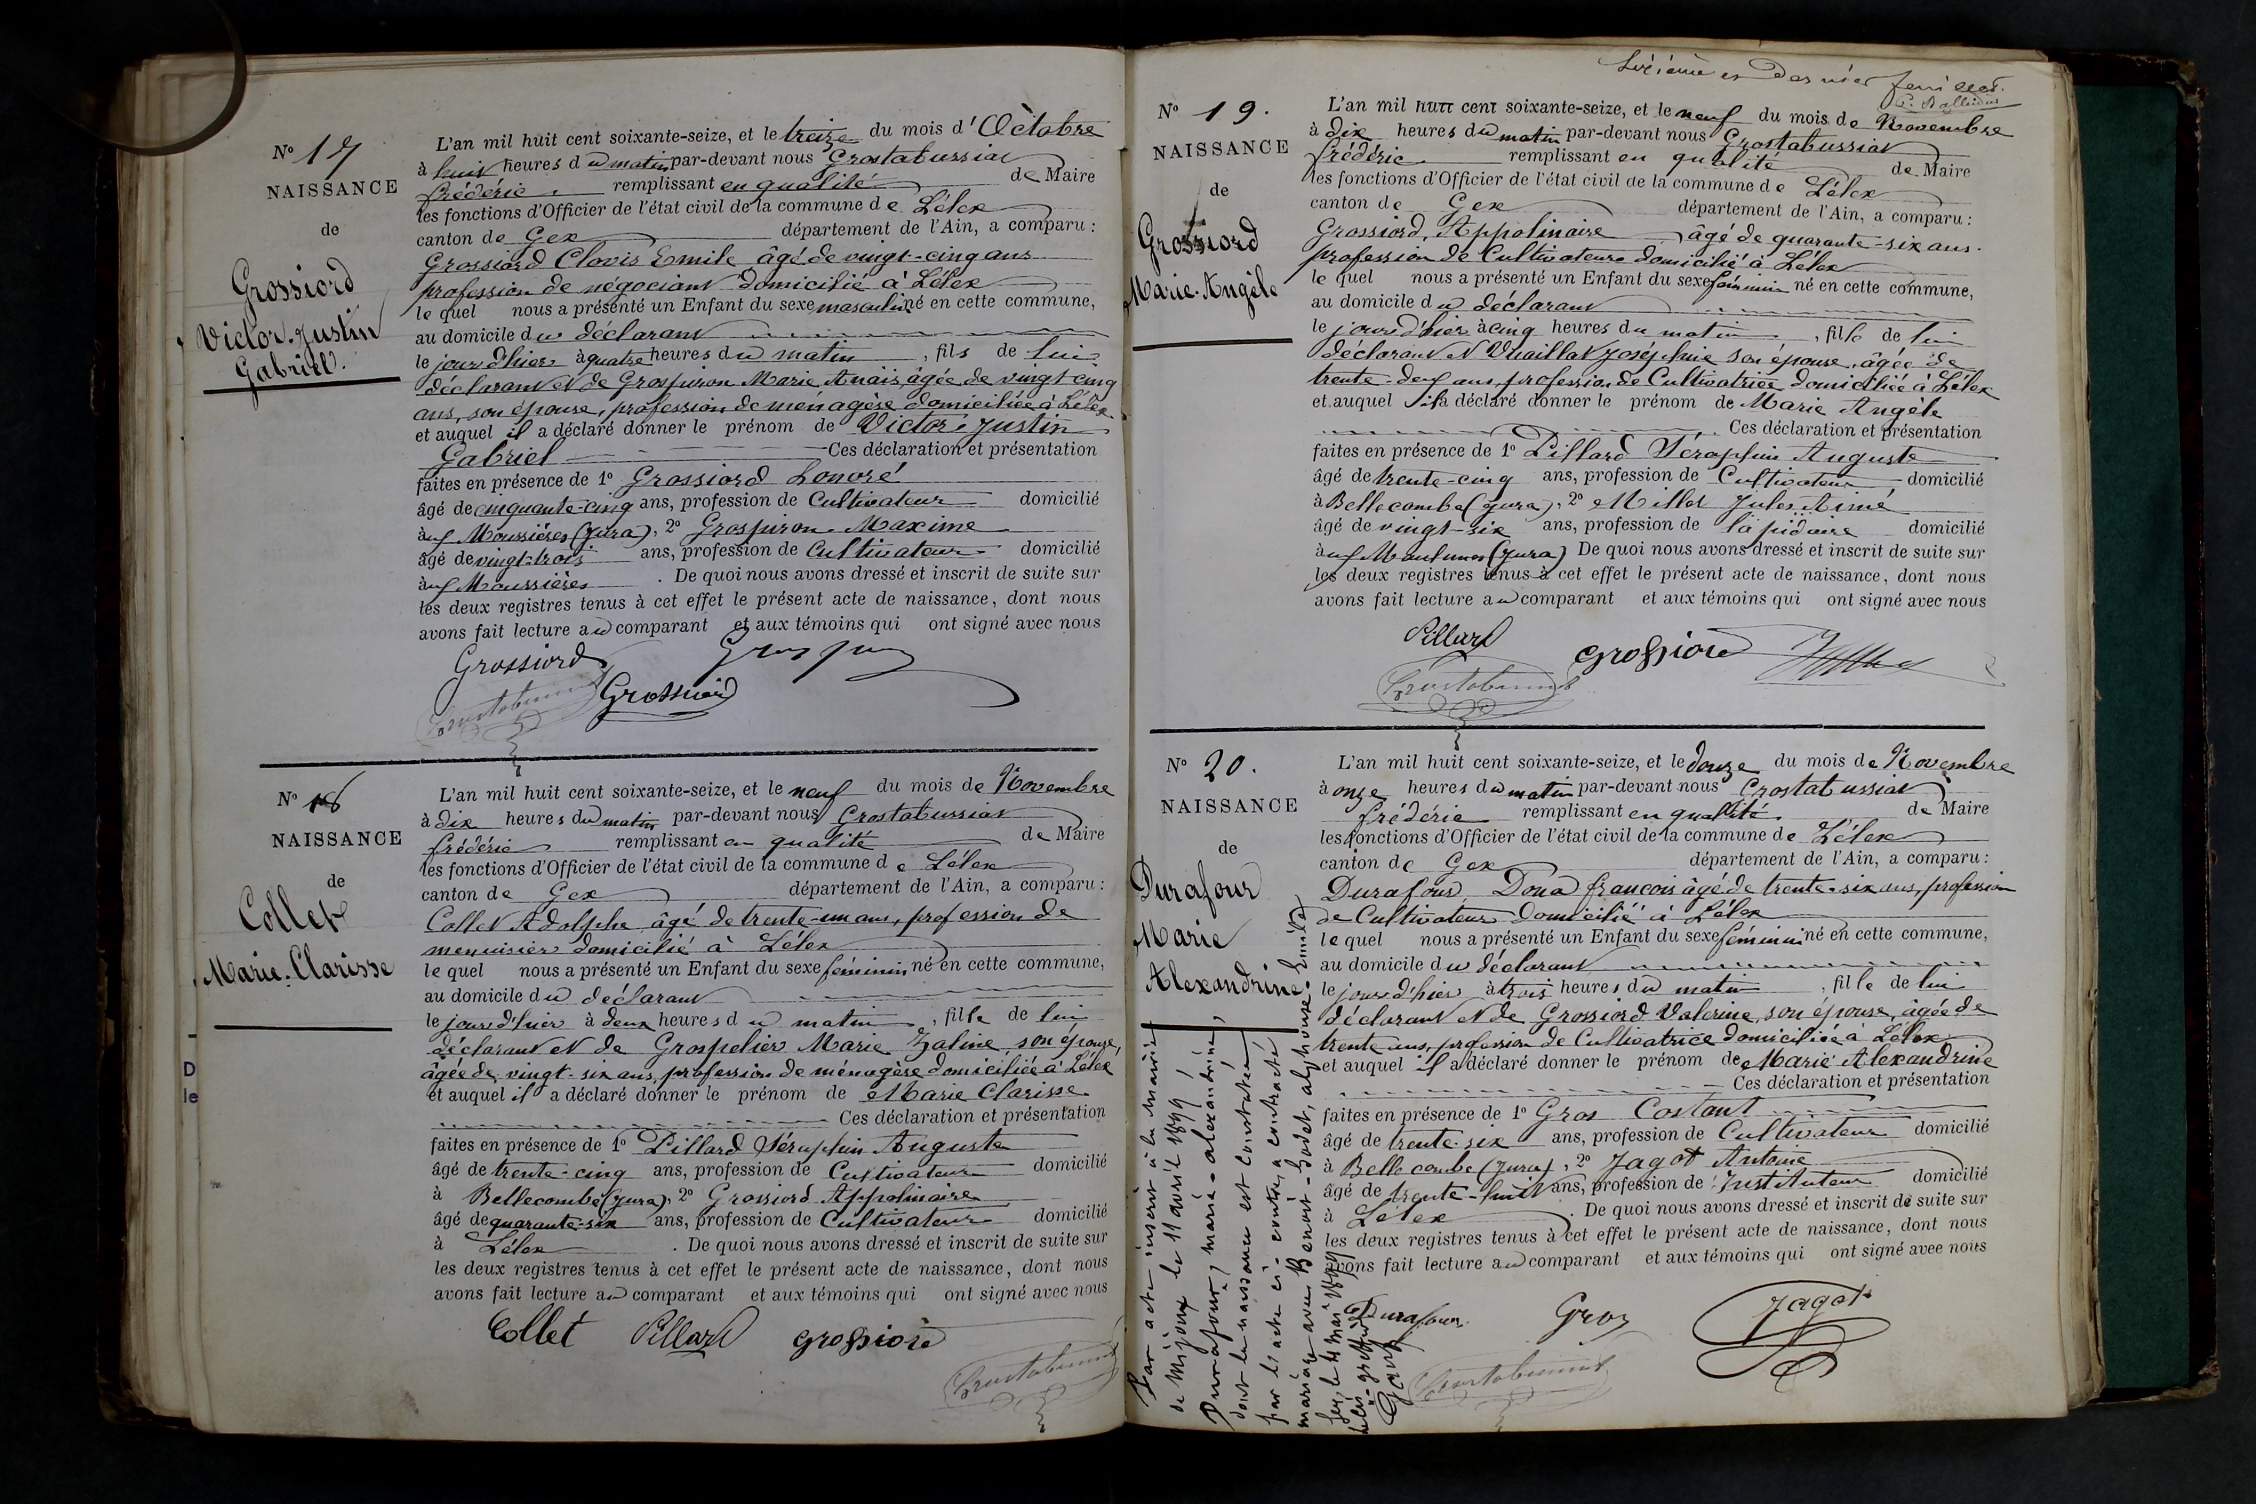 N° 17
NAISSANCE
de
Grossiord
Victor-Justin
Gabriel.
L'an mil huit cent soixante-seize, et le treize du mois d'Octobre
à huit heures du matin par-devant nous Grostabussiat
frédéric remplissant en qualité de Maire
les fonctions d'Officier de l'état civil de la commune de Lélex
canton de Gex département de l'Ain, a comparu :
Grossiord Clovis Emile âgé de vingt-cinq ans
profession de négociant domicilié à Lélex
le quel nous a présenté un Enfant du sexe masculin né en cette commune,
au domicile du déclarant
le jour d'hier à quatre heures du matin, fils de lui
déclarant et de Grospiron Marie Anaïs, âgée de vingt cinq
ans, son épouse, profession de ménagère domiciliée à Lélex
et auquel il a déclaré donner le prénom de Victor, Justin
Gabriel Ces déclaration et présentation
faites en présence de 1° Grossiord honoré
âgé de cinquante-cinq ans, profession de Cultivateur domicilié
aux Moussières (Jura), 2° Grospiron Maxime
âgé de vingt-trois ans, profession de Cultivateur domicilié
aux Moussières. De quoi nous avons dressé et inscrit de suite sur
les deux registres tenus à cet effet le présent acte de naissance, dont nous
avons fait lecture au comparant et aux témoins qui ont signé avec nous
Grossiord
Grossiord
N° 18
NAISSANCE
de
Collet
Marie-Clarisse
L'an mil huit cent soixante-seize, et le neuf du mois de Novembre
à dix heures du matin par-devant nous Grostabussiat
frédéric remplissant en qualité de Maire
les fonctions d'Officier de l'état civil de la commune de Lélex
canton de Gex département de l'Ain, a comparu :
Collet Adolphe âgé de trente-un ans, profession de
menuisier domicilié à Lélex
le quel nous a présenté un Enfant du sexe féminin né en cette commune,
au domicile du déclarant
le jour d'hier à deux heures du matin, fille de lui
déclarant et de Grospelier Marie Zaline son épouse,
âgée de vingt-six ans, profession de ménagère domiciliée à Lélex
et auquel il a déclaré donner le prénom de Marie Clarisse
Ces déclaration et présentation
faites en présence de 1° Pillard Séraphin Auguste
âgé de trente-cinq ans, profession de Cultivateur domicilié
à Bellecombe (Jura), 2° Grossiord Appolinaire
âgé de quarante-six ans, profession de Cultivateur domicilié
à Lélex. De quoi nous avons dressé et inscrit de suite sur
les deux registres tenus à cet effet le présent acte de naissance, dont nous
avons fait lecture au comparant et aux témoins qui ont signé avec nous
Collet Pillard Grossiord
D
le
et Dernier feuillet.
N° 19.
NAISSANCE
de
Grossiord
Marie-Angèle
L'an mil huit cent soixante-seize, et le neuf du mois de Novembre
à dix heures du matin par-devant nous Grostabussiat
frédéric remplissant en qualité de Maire
les fonctions d'Officier de l'état civil de la commune de Lélex
canton de Gex département de l'Ain, a comparu :
Grossiord, Appolinaire, âgé de quarante-six ans.
profession de Cultivateur domicilié à Lélex
le quel nous a présenté un Enfant du sexe féminin né en cette commune,
au domicile du déclarant
le jour d'hier à cinq heures du matin, fille de lui
déclarant et Vuaillat Joséphine son épouse, âgée de
trente-deux ans, profession de Cultivatrice domiciliée à Lélex
et auquel il a déclaré donner le prénom de Marie Angèle
Ces déclaration et présentation
faites en présence de 1° Pillard Séraphin Auguste
âgé de trente-cinq ans, profession de Cultivateur domicilié
à Bellecombe (Jura), 2° Millet Jules Aimé
âgé de vingt-six ans, profession de lapidaire domicilié
aux Moulunes (Jura) De quoi nous avons dressé et inscrit de suite sur
les deux registres tenus à cet effet le présent acte de naissance, dont nous
avons fait lecture au comparant et aux témoins qui ont signé avec nous
Pillard Grossiord
N° 20.
NAISSANCE
de
Durafour
Marie
Alexandrine
L'an mil huit cent soixante-seize, et le douze du mois de Novembre
à onze heures du matin par-devant nous Grostabussiat
frédéric remplissant en qualité de Maire
les fonctions d'Officier de l'état civil de la commune de Lélex
canton de Gex département de l'Ain, a comparu :
Durafour, Dona françois âgé de trente-six ans, profession
de Cultivateur domicilié à Lélex
le quel nous a présenté un Enfant du sexe féminin né en cette commune,
au domicile du déclarant
le jour d'hier à trois heures du matin, fille de lui
déclarant et de Grossiord Valerine, son épouse, âgée de
trente ans, profession de Cultivatrice domiciliée à Lélex
et auquel il a déclaré donner le prénom de Marie Alexandrine
Ces déclaration et présentation
faites en présence de 1° Gros Costant
âgé de trente-six ans, profession de Cultivateur domicilié
à Bellecombe (Jura), 2° Jagot Antoine
âgé de trente-huit ans, profession de Instituteur domicilié
à Lélex. De quoi nous avons dressé et inscrit de suite sur
les deux registres tenus à cet effet le présent acte de naissance, dont nous
avons fait lecture au comparant et aux témoins qui ont signé avec nous
Durafour Gros Jagot
Par acte inscrit à la mairie
de Mijoux le 11 avril 1899,
Durafour, marie-alexandrine,
dont la naissance est constatée
par l'acte ci-contre, a contracté
mariage avec Benoit-Godet, alphonse-Emile.
Gex, le 4 mai 1899